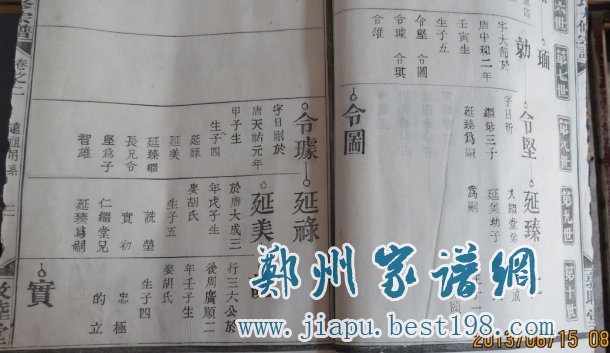 第六世
第七世
第八世
第九世
勑
字大範於
唐中和二年
壬寅生
生子五
令堅 令圖
令璩 令琪
令雄
令堅
字日新
繼弟三子
延臻爲嗣
延臻
又繼堂弟
延美幼子
爲嗣
令圖
令璩
字日剛於
唐天祐元年
甲子生
生子四
延祿
延美
延臻繼
長兄令
堅爲子
智雄
延祿
延美
於唐大成三
年戊子生
娶胡氏
生子五
詵 瑩
實 初
仁繼堂兄
延臻爲嗣
行三六公於
後周廣順二
年壬子生
娶胡氏
生子四
忠 極
的 立
實
卷之二
鄭州家譜網
www.jiapu.best198.com
2013/06/15 08